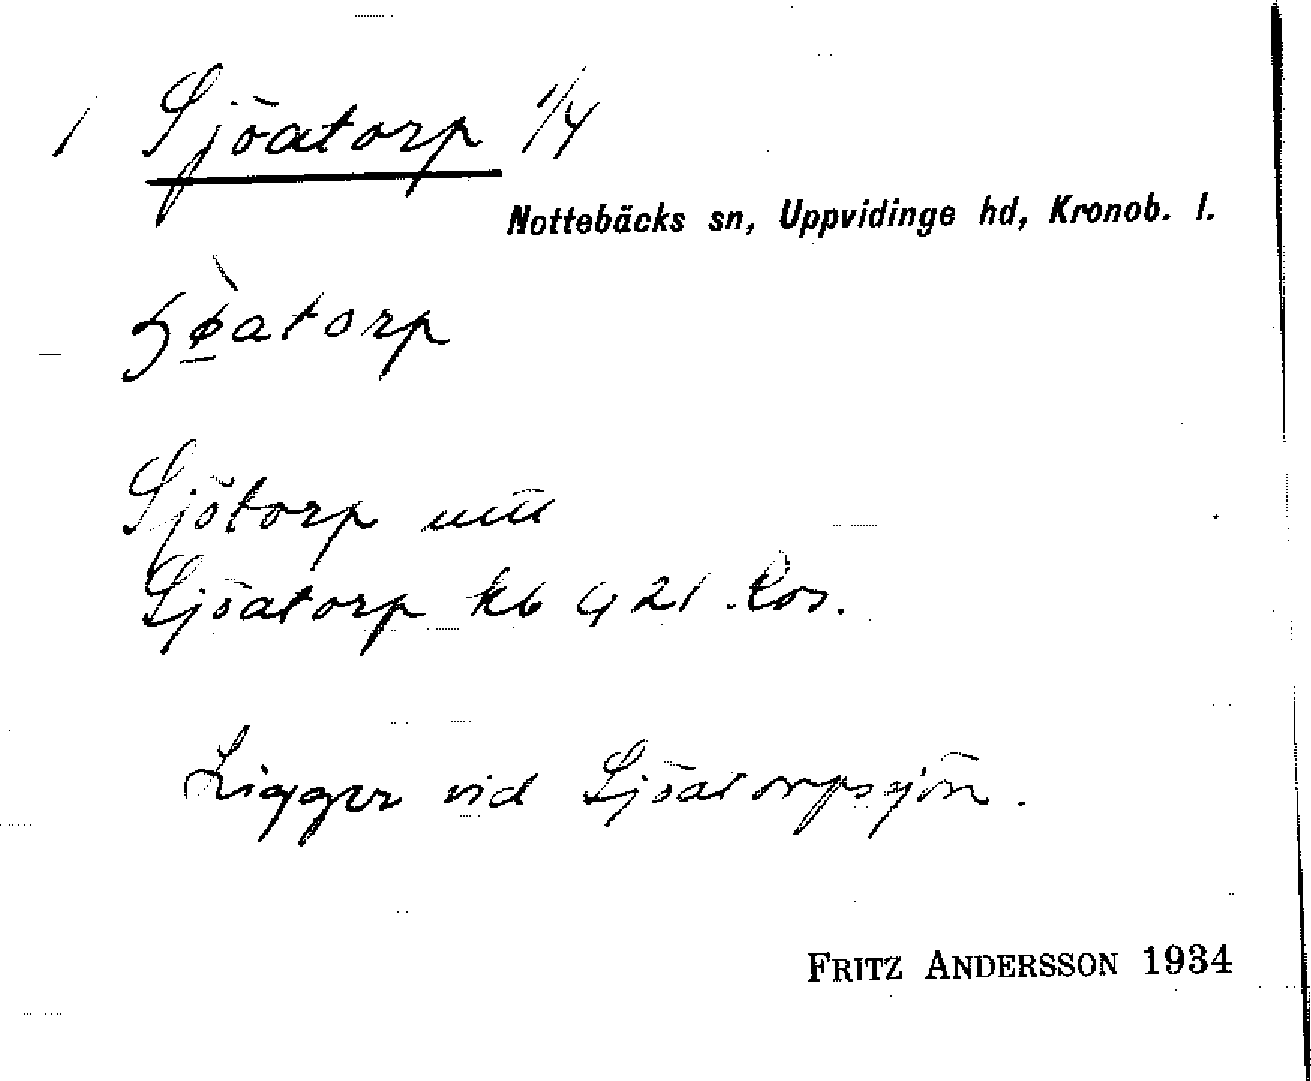 1 Sjöatorp 1/4
Nottebäcks sn, Uppvidinge hd, Kronob. l.
atorp
Sjötorp
Sjöatorp kb 4 21 Ros.
Ligger vid Sjöatorpsjön.
FRITZ ANDERSSON 1934